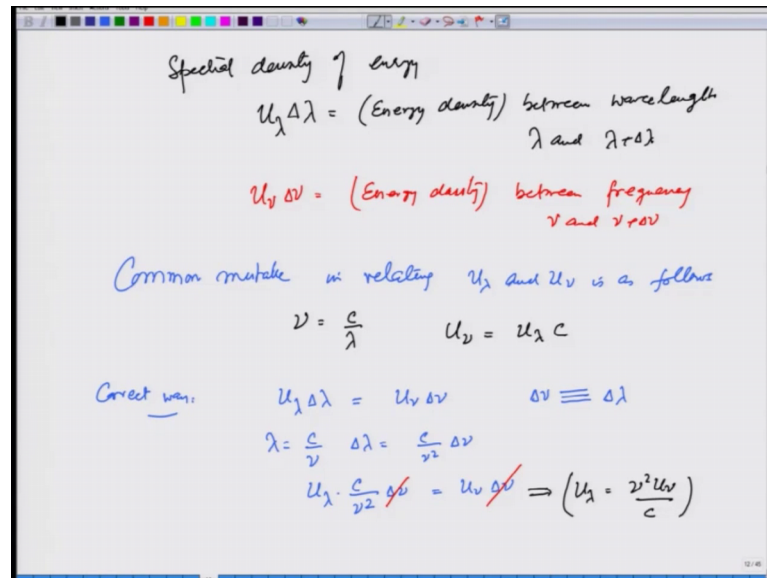 Spectral density of energy
u_λ Δλ = (Energy density) between wavelength
λ and λ+Δλ
u_ν Δν = (Energy density) between frequency
ν and ν+Δν
Common mistake in relating u_λ and u_ν is as follows
ν = c/λ u_ν = u_λ c
Correct way: u_λ Δλ = u_ν Δν Δν ≡ Δλ
λ = c/ν Δλ = c/ν² Δν
u_λ · c/ν² Δν = u_ν Δν ⇒ (u_λ = ν² u_ν / c)
12/45